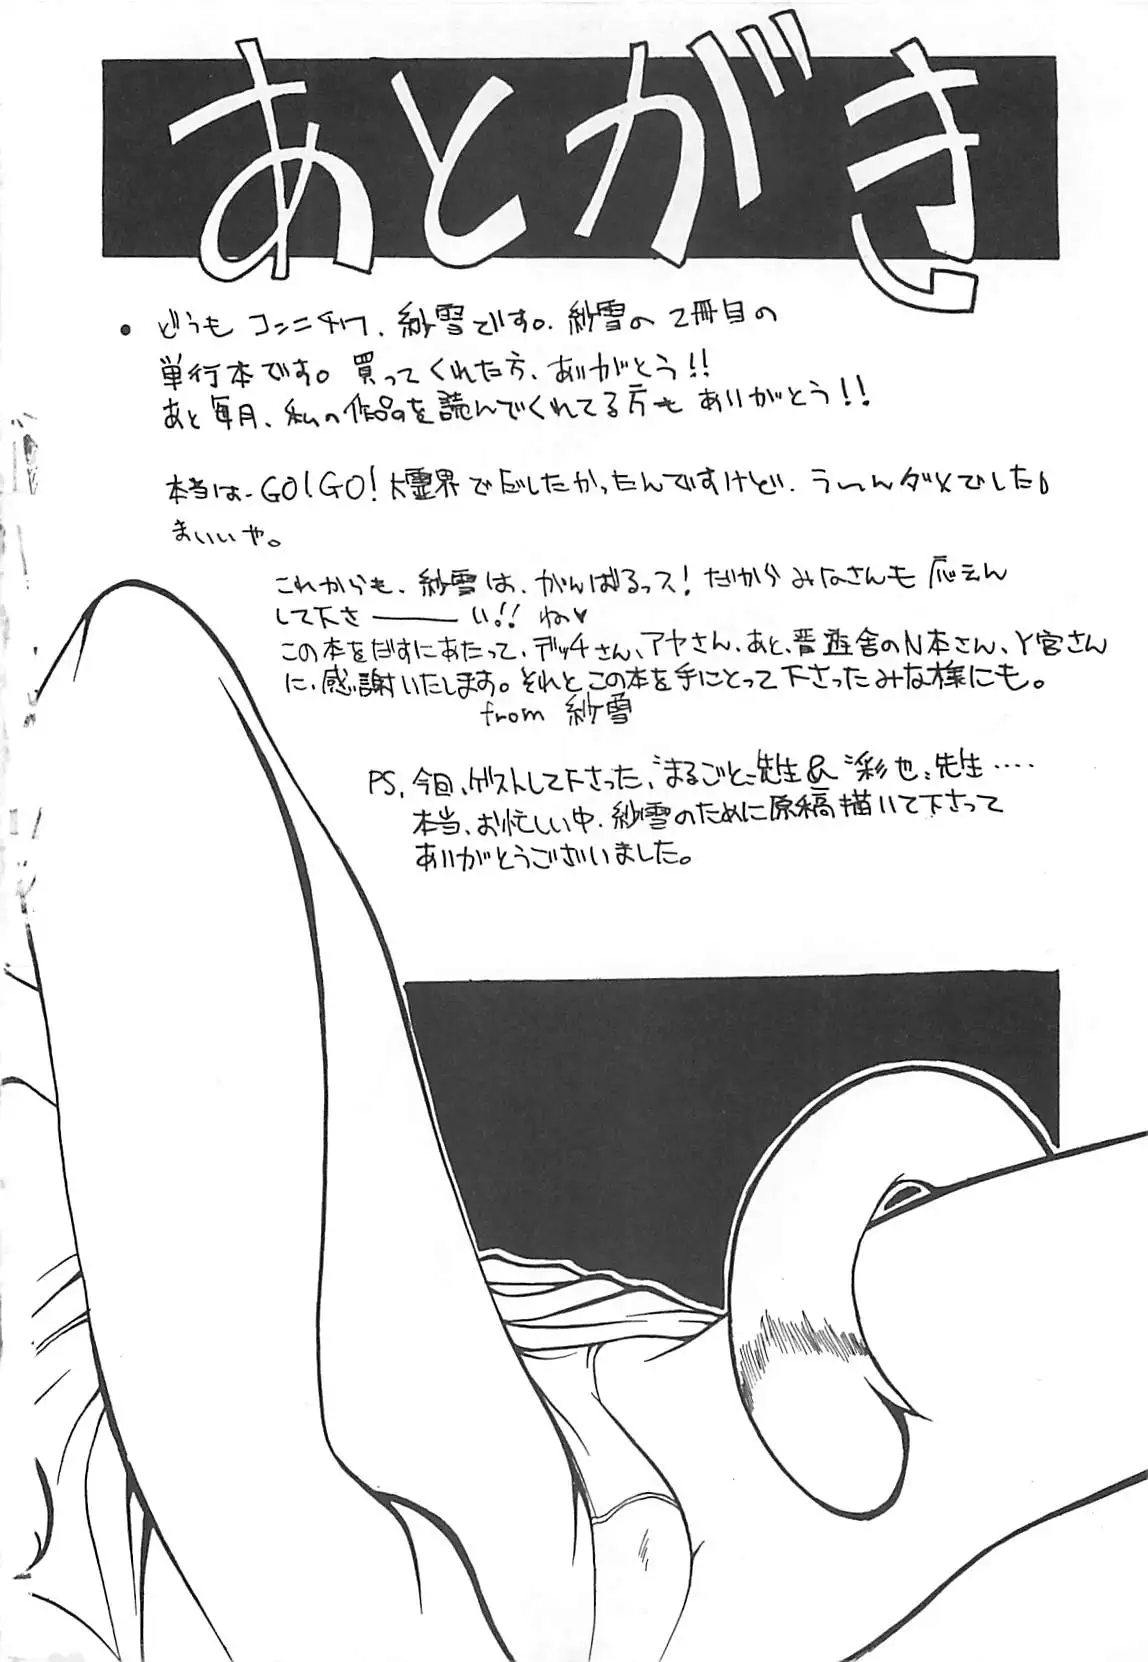 あとがき
• どうもコンニチワ、紗雪です。紗雪の2冊目の
単行本です。買ってくれた方、ありがとう!!
あと毎月、私の作品を読んでくれてる方もありがとう!!
本当は、GO!GO!大霊界でだしたかったんですけど、うーんダメでした。
まいいや。
これからも、紗雪は、がんばるっス!だからみなさんも応えん
して下さ――い!!ね♥
この本をだすにあたって、デッチさん、アヤさん、あと、晋遊舎のN本さん、Y宮さん
に、感謝いたします。それとこの本を手にとって下さったみな様にも。
from 紗雪
PS,今回、ゲストして下さった、"まるごと"先生&"彩也"先生‥‥
本当、お忙しい中、紗雪のために原稿描いて下さって
ありがとうございました。